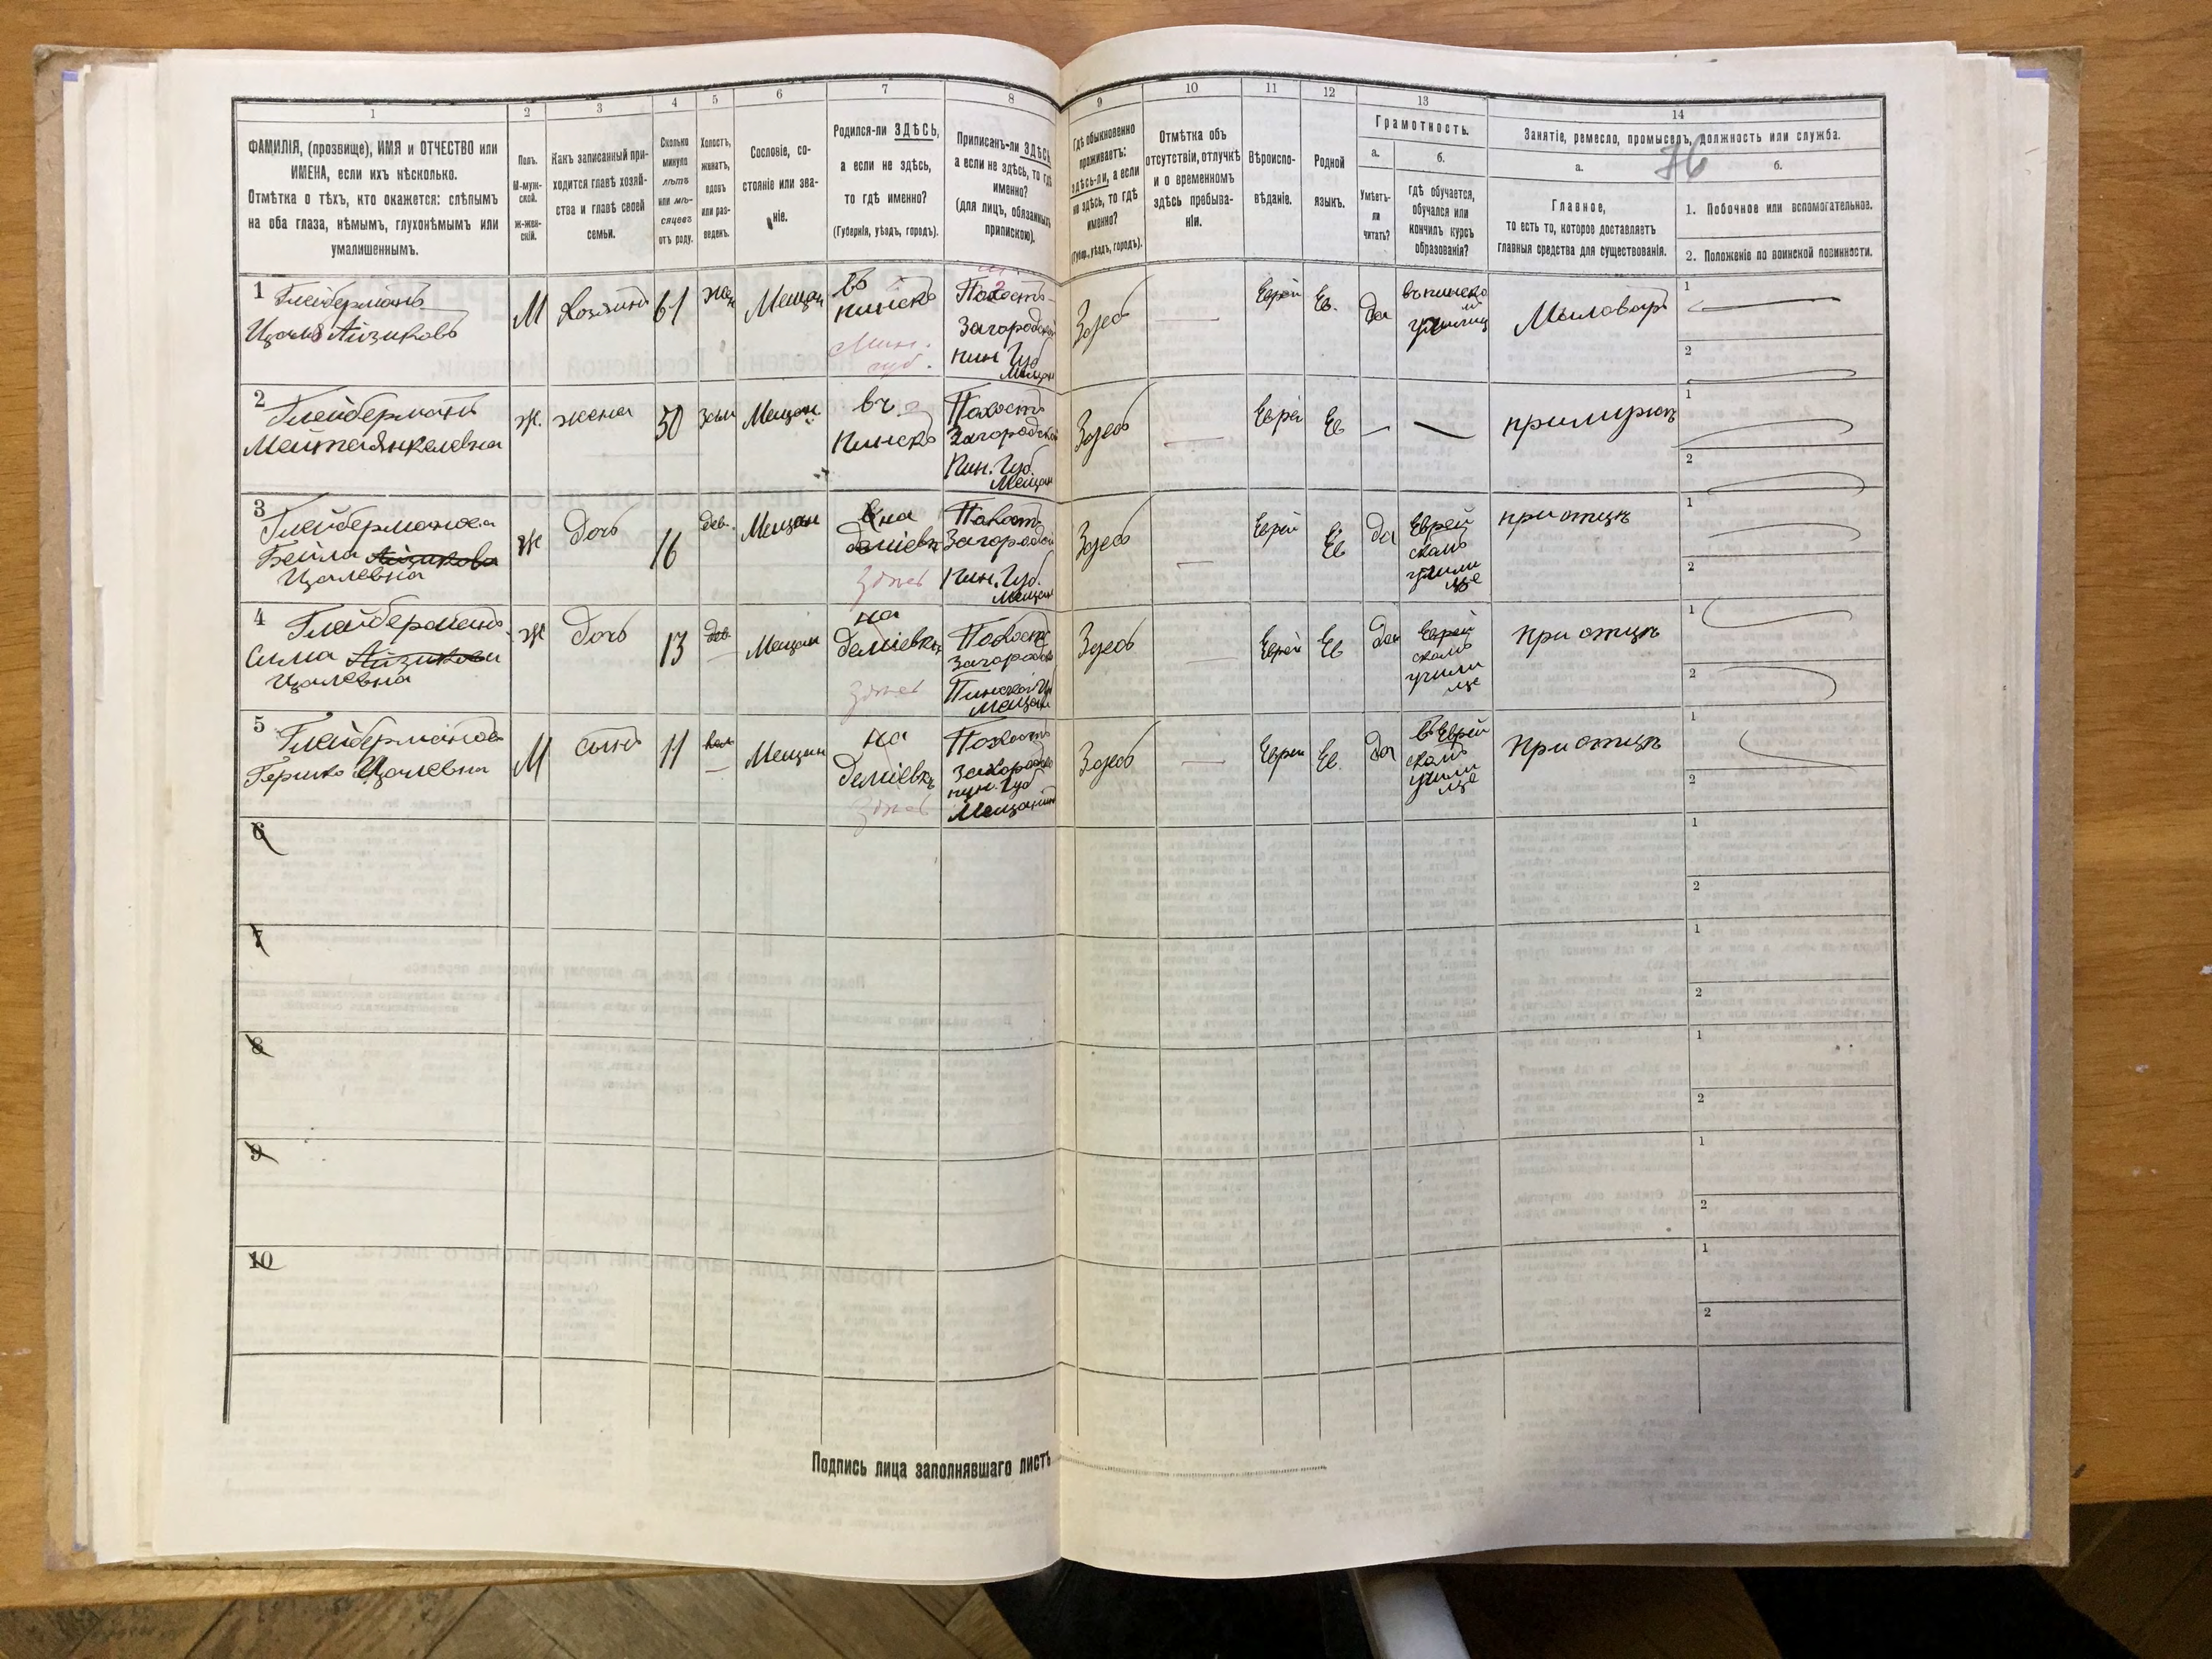 1
2
3
4
5
6
7
8
9
10
11
12
13
14
ФАМИЛІЯ, (прозвище), ИМЯ и ОТЧЕСТВО или
ИМЕНА, если ихъ нѣсколько.
Отмѣтка о тѣхъ, кто окажется: слѣпымъ
на оба глаза, нѣмымъ, глухонѣмымъ или
умалишеннымъ.
Полъ.
М-муж-
ской.
Ж-жен-
скій.
Какъ записанный при-
ходится главѣ хозяй-
ства и главѣ своей
семьи.
Сколько
минуло
лѣтъ
или мѣ-
сяцевъ
отъ роду.
Холостъ,
женатъ,
вдовъ
или раз-
веденъ.
Сословіе, со-
стояніе или зва-
ніе.
Родился-ли ЗДѢСЬ,
а если не здѣсь,
то гдѣ именно?
(Губернія, уѣздъ, городъ).
Приписанъ-ли ЗДѢСЬ,
а если не здѣсь, то гдѣ
именно?
(для лицъ, обязанныхъ
припискою).
Гдѣ обыкновенно
проживаетъ:
здѣсь-ли, а если
не здѣсь, то гдѣ
именно?
(Губер., уѣздъ, городъ).
Отмѣтка объ
отсутствіи, отлучкѣ
и о временномъ
здѣсь пребыва-
ніи.
Вѣроиспо-
вѣданіе.
Родной
языкъ.
Грамотность.
а.
б.
Умѣетъ-
ли
читать?
гдѣ обучается,
обучался или
кончилъ курсъ
образованія?
Занятіе, ремесло, промыселъ, должность или служба.
76
а.
б.
Главное,
то есть то, которое доставляетъ
главныя средства для существованія.
1. Побочное или вспомогательное.
2. Положеніе по воинской повинности.
1 Глейберманъ
Айзиковъ
М
Хозяинъ
61
жен
Мещан
въ
пинскѣ
Мин.
губ.
Погостъ
Загородск
пин Губ
Мещан
Здесь
Еврей
Ев.
да
въ пинско
училищ
Мыловаръ
1
2
2 Глейберманъ
Янкелевна
ж.
жена
50
Мещан.
въ
пинскѣ
Погостъ
Загородской
Пин. Губ.
Мещан
Здесь
Еврей
Ев
примужѣ
1
2
3
Бейла Айзикова
Цалевна
ж
дочь
16
дев.
Мещан
на
деміевкѣ
Здесь
Погост
Загородской
Пин. Губ.
Мещан
Здесь
Еврей
Ев
да
Еврей
скомъ
учили
ще
при отцѣ
1
2
4 Глейберманъ
Сима Айзикова
Цалевна
ж
дочь
13
дев
Мещан
на
деміевкѣ
Здесь
Погостъ
Загородск
Пинской Губ
Мещан
Здесь
Еврей
Ев
да
Еврей
скомъ
учили
ще
при отцѣ
1
2
5
Гершко Цалевна
М
сынъ
11
хол
Мещан
на
деміевкѣ
Здесь
Погостъ
Загородск
пин. Губ
Мещанинъ
Здесь
Еврей
Ев.
да
въ Еврей
скомъ
учили
ще
При отцѣ
1
2
6
1
2
7
1
2
8
1
2
9
1
2
10
1
2
Подпись лица заполнявшаго листъ